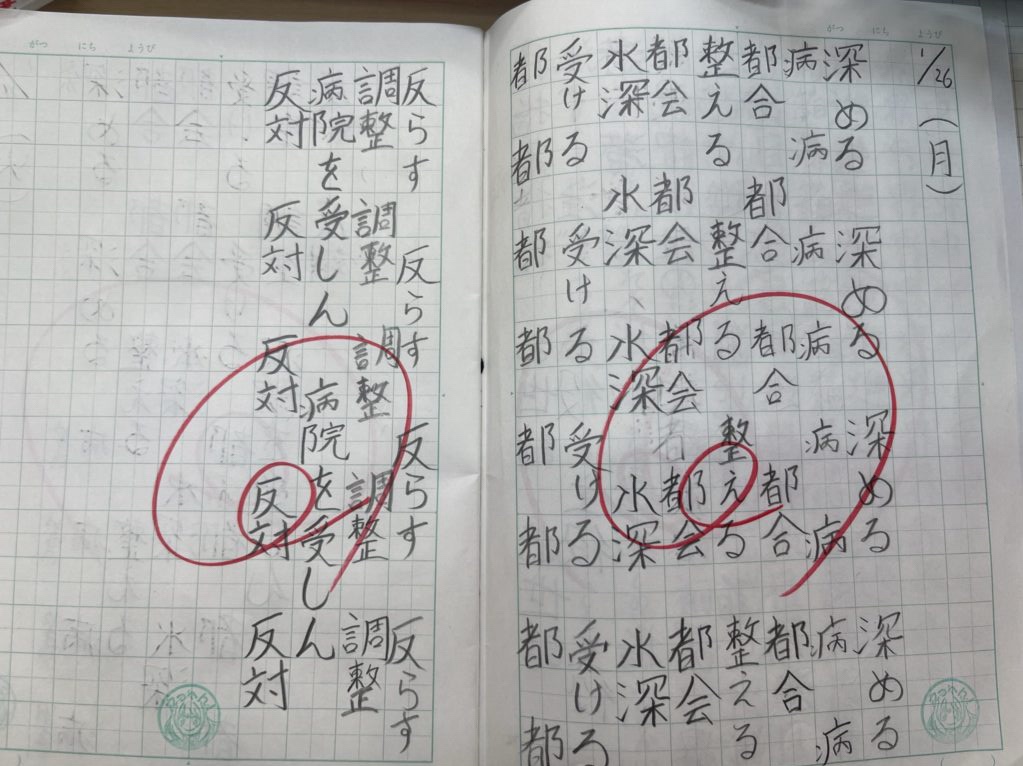 がつ にち ようび
1/26(月)
深める 深める 深める 深める
病 病 病 病 病 病 病 病
都合 都合 都合 都合 都合
整える 整える 整える 整える
都会 都会 都会 都会 都会
水深 水深 水深 水深 水深
受ける 受ける 受ける 受ける
都 都 都 都 都 都 都 都
がつ にち ようび
反らす 反らす 反らす 反らす
調整 調整 調整 調整 調整
病院を受しん 病院を受しん
反対 反対 反対 反対 反対